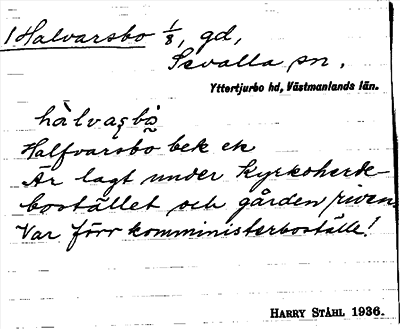 1 Halvarsbo 1/8, gd,
Sevalla sn.
Yttertjurbo hd, Västmanlands län.
hàlvaşbò
Halfvarsbo bek ek
Är lagt under kyrkoherde-
bostället och gården riven.
Var förr komministerboställe!
HARRY STÅHL 1936.